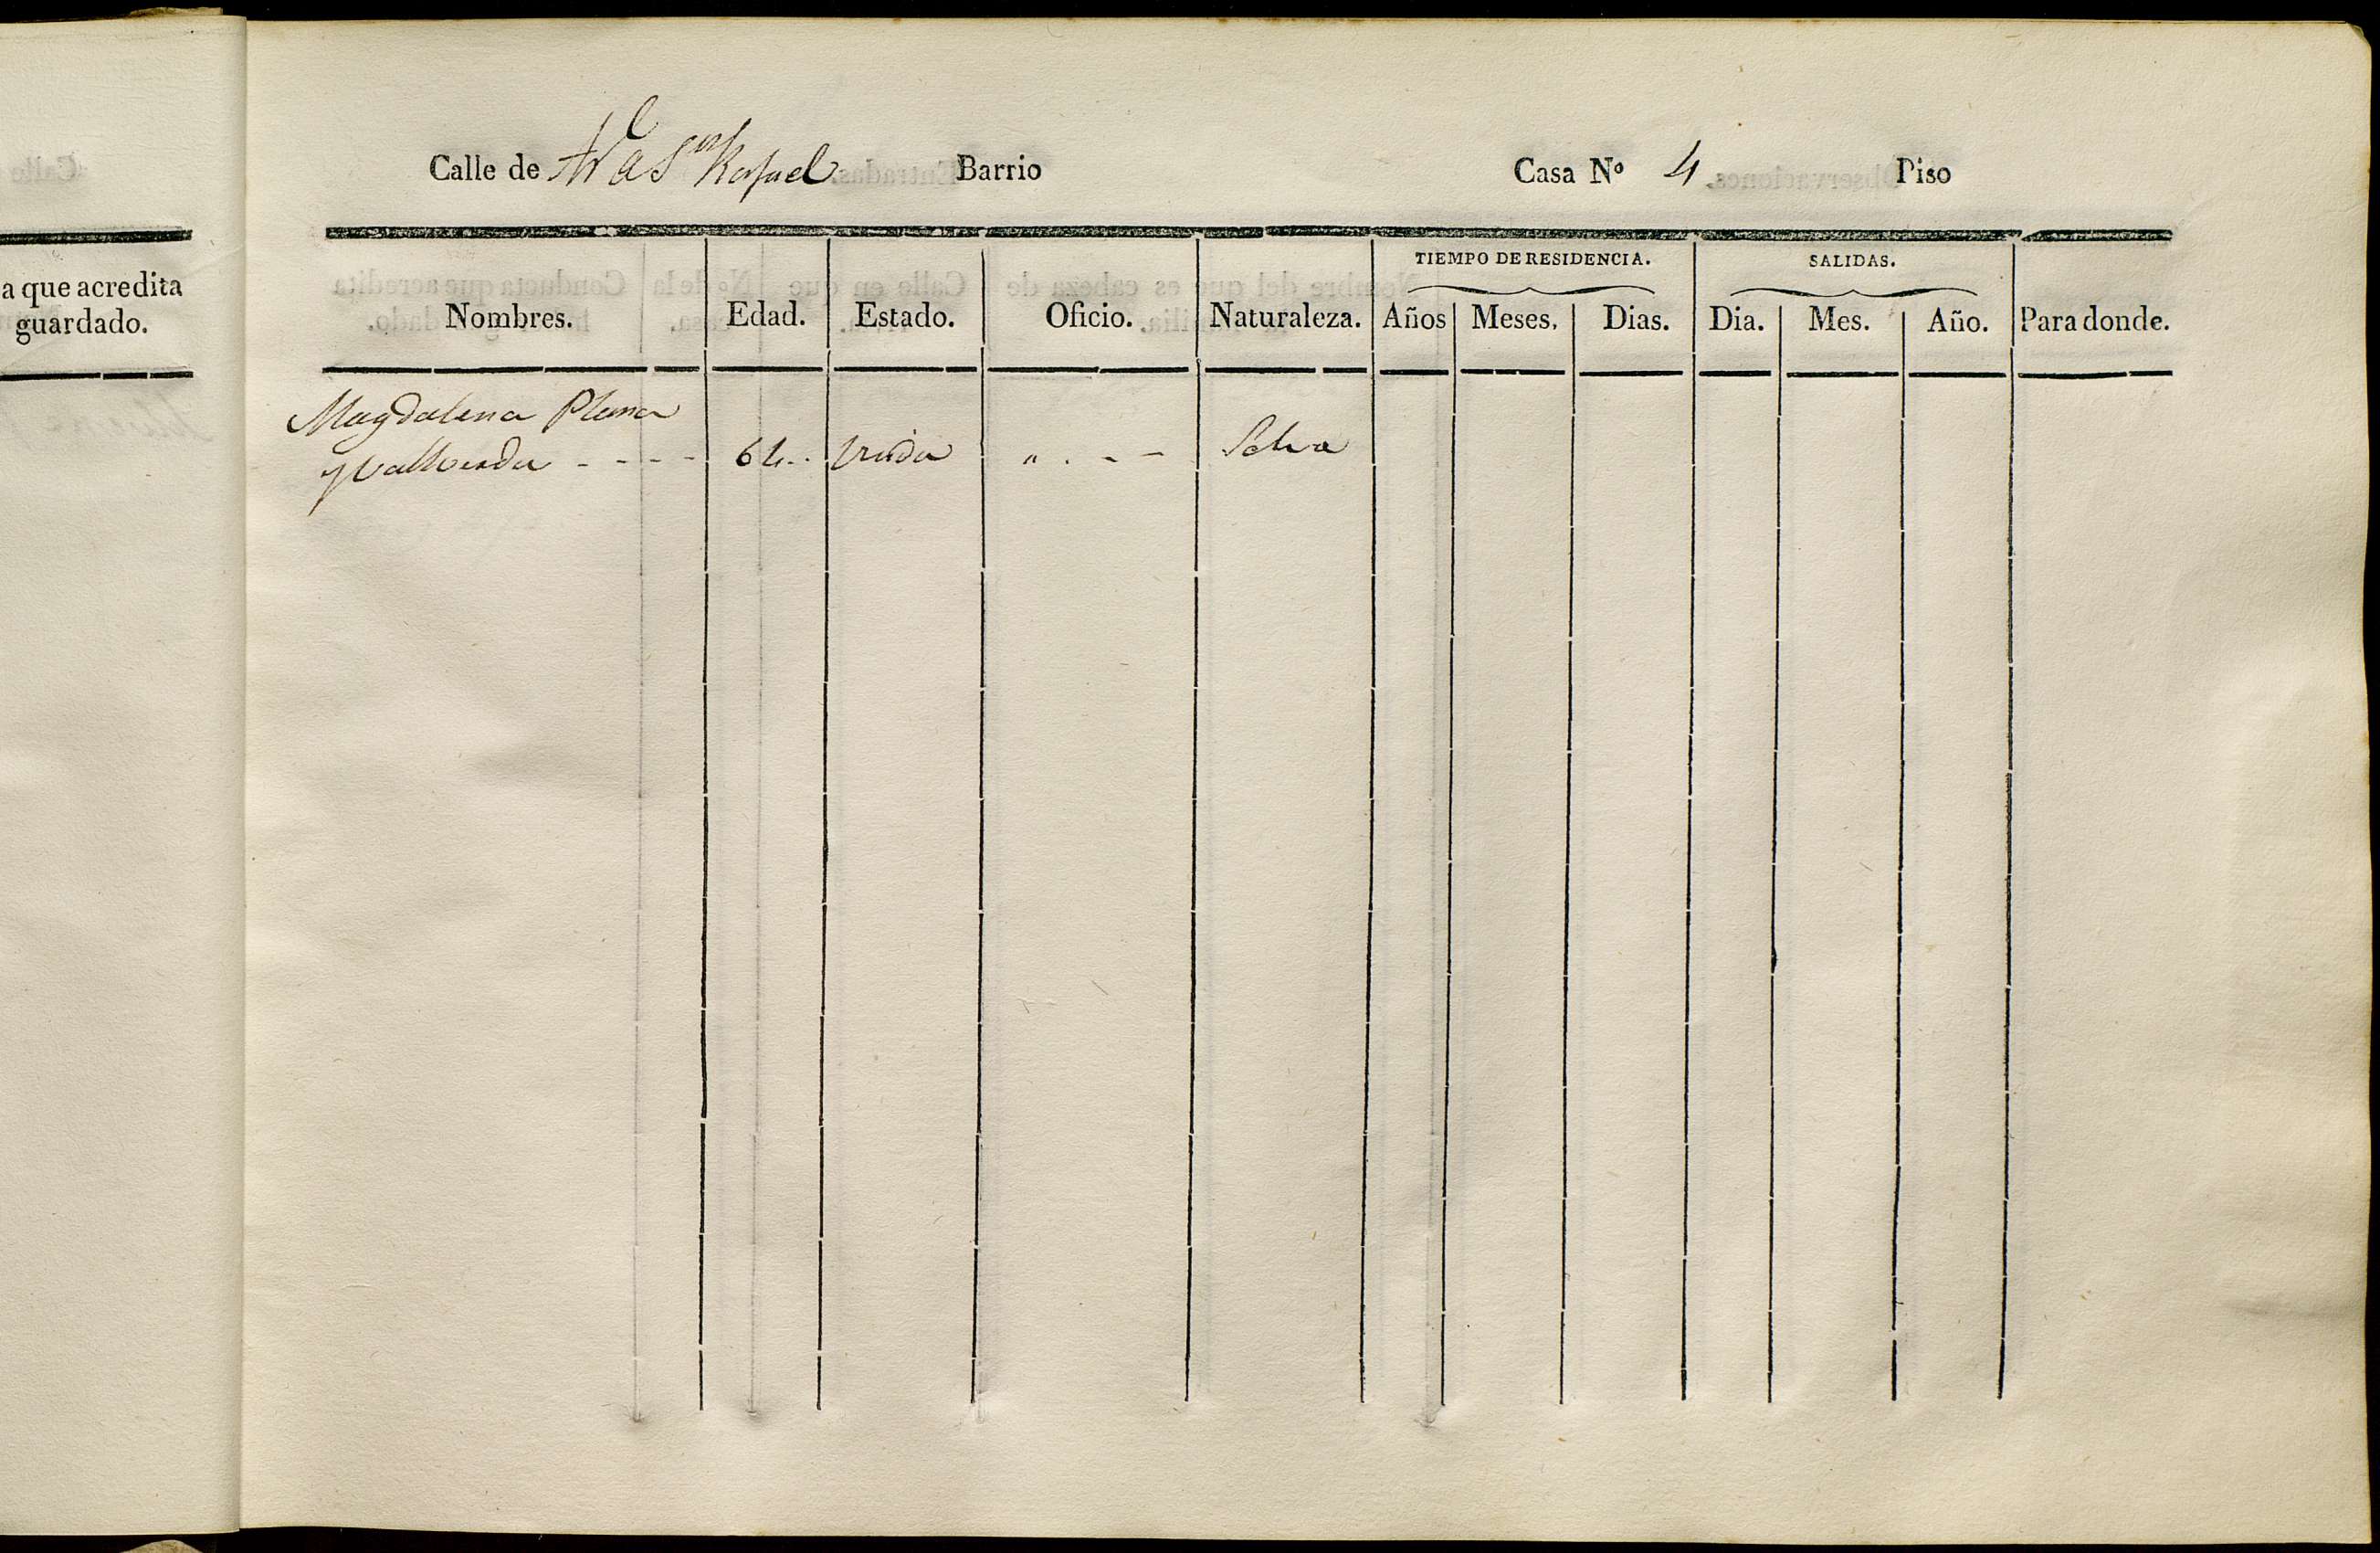 Calle de Tra.ª S.ⁿ Rafael Barrio Casa Nº 4 Piso
a que acredita
guardado.
TIEMPO DE RESIDENCIA. SALIDAS.
Nombres. Edad. Estado. Oficio. Naturaleza. Años Meses. Dias. Dia. Mes. Año. Para donde.
Magdalena Plana
y Vallverdu - - - - 64.. Viuda " . - - Selva